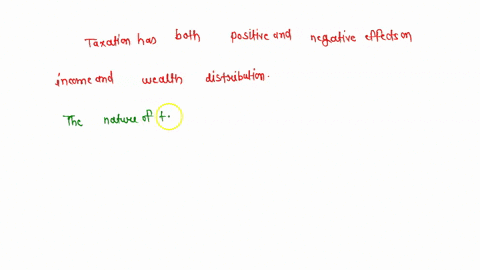 Taxation has both positive and negative effects on
income and wealth distribution.
The nature of t